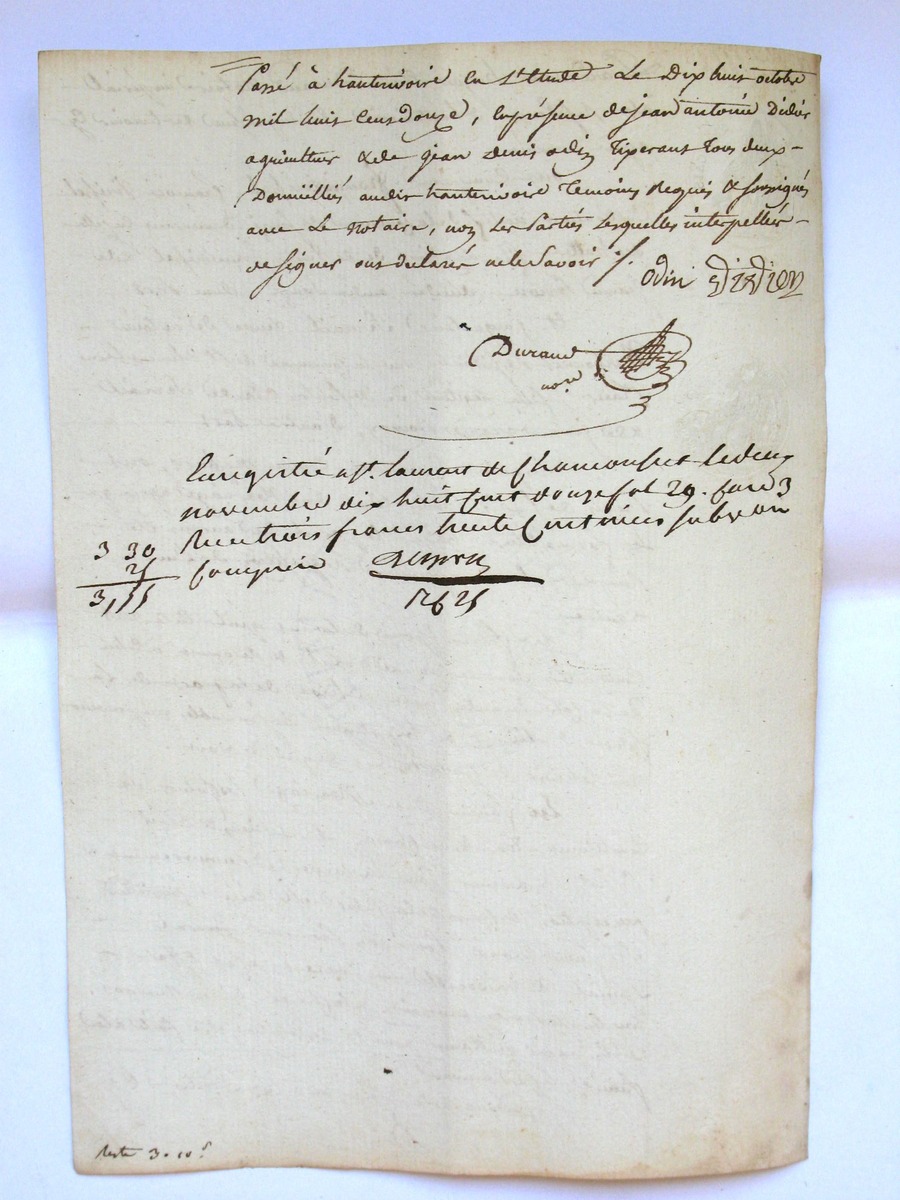 Passé à hauterivoire En l'Etude Le Dix huit octobre
mil huit Cens Douze, En présence de jean antoine Didier
agriculteur & de jean Denis odin Tisserant Tous deux
Domiciliés audit hauterivoire Temoins Requis & soussignés
avec Le notaire, non Les Parties Lesquelles interpellées
de signer ont declaré ne le Savoir ./.
Odin Didier
Durand
nore
Enregistré a st. laurent de Chamousset le deux
novembre dix huit Cent douze fol 29. Case 3
Recu trois francs trente Centimes subvon
3 30
Comprise